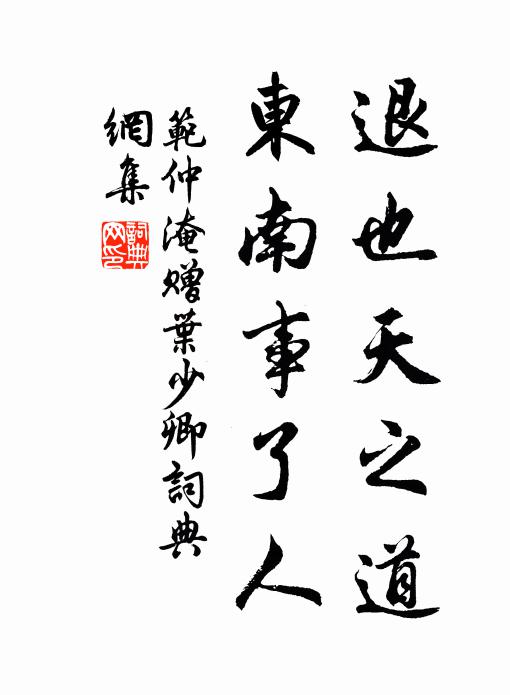 退也天之道
東南事了人
範仲淹贈葉少卿詞典
網集
詞典网印